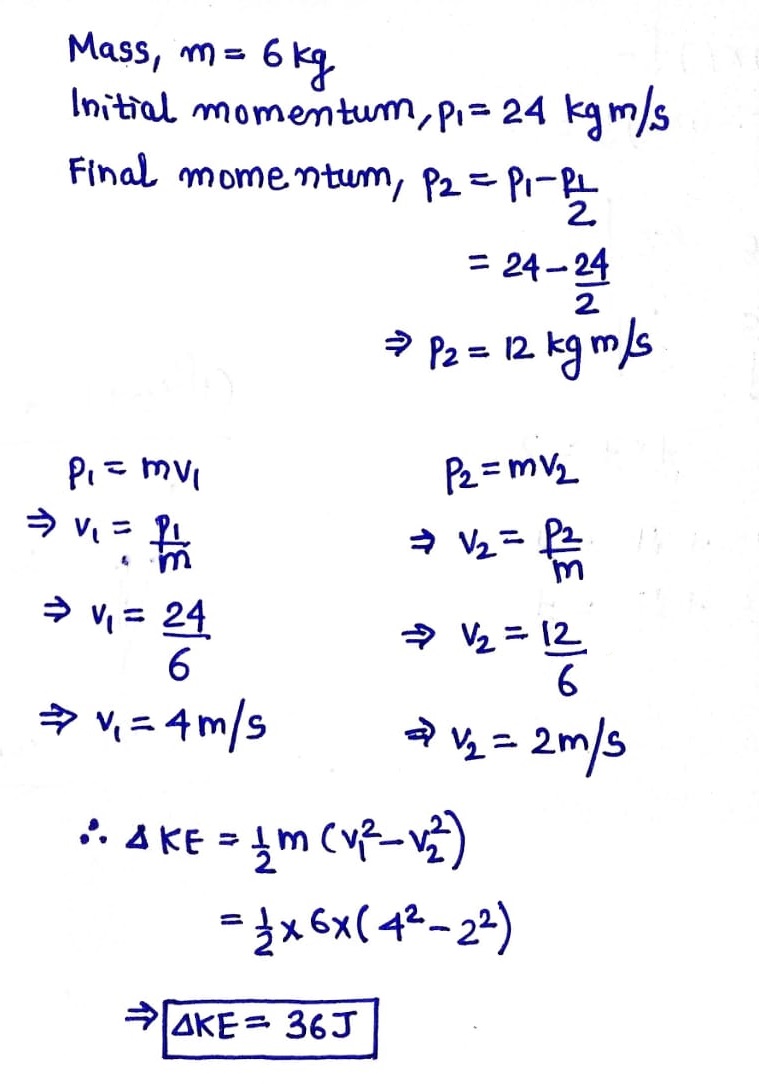 Mass, m = 6 kg
Initial momentum, p₁ = 24 kg m/s
Final momentum, P₂ = P₁ - P₁/2
= 24 - 24/2
⇒ P₂ = 12 kg m/s
P₁ = mv₁
⇒ v₁ = P₁/m
⇒ v₁ = 24/6
⇒ v₁ = 4 m/s
P₂ = mv₂
⇒ v₂ = P₂/m
⇒ v₂ = 12/6
⇒ v₂ = 2 m/s
∴ Δ KE = 1/2 m (v₁² - v₂²)
= 1/2 × 6 × (4² - 2²)
⇒ ΔKE = 36 J